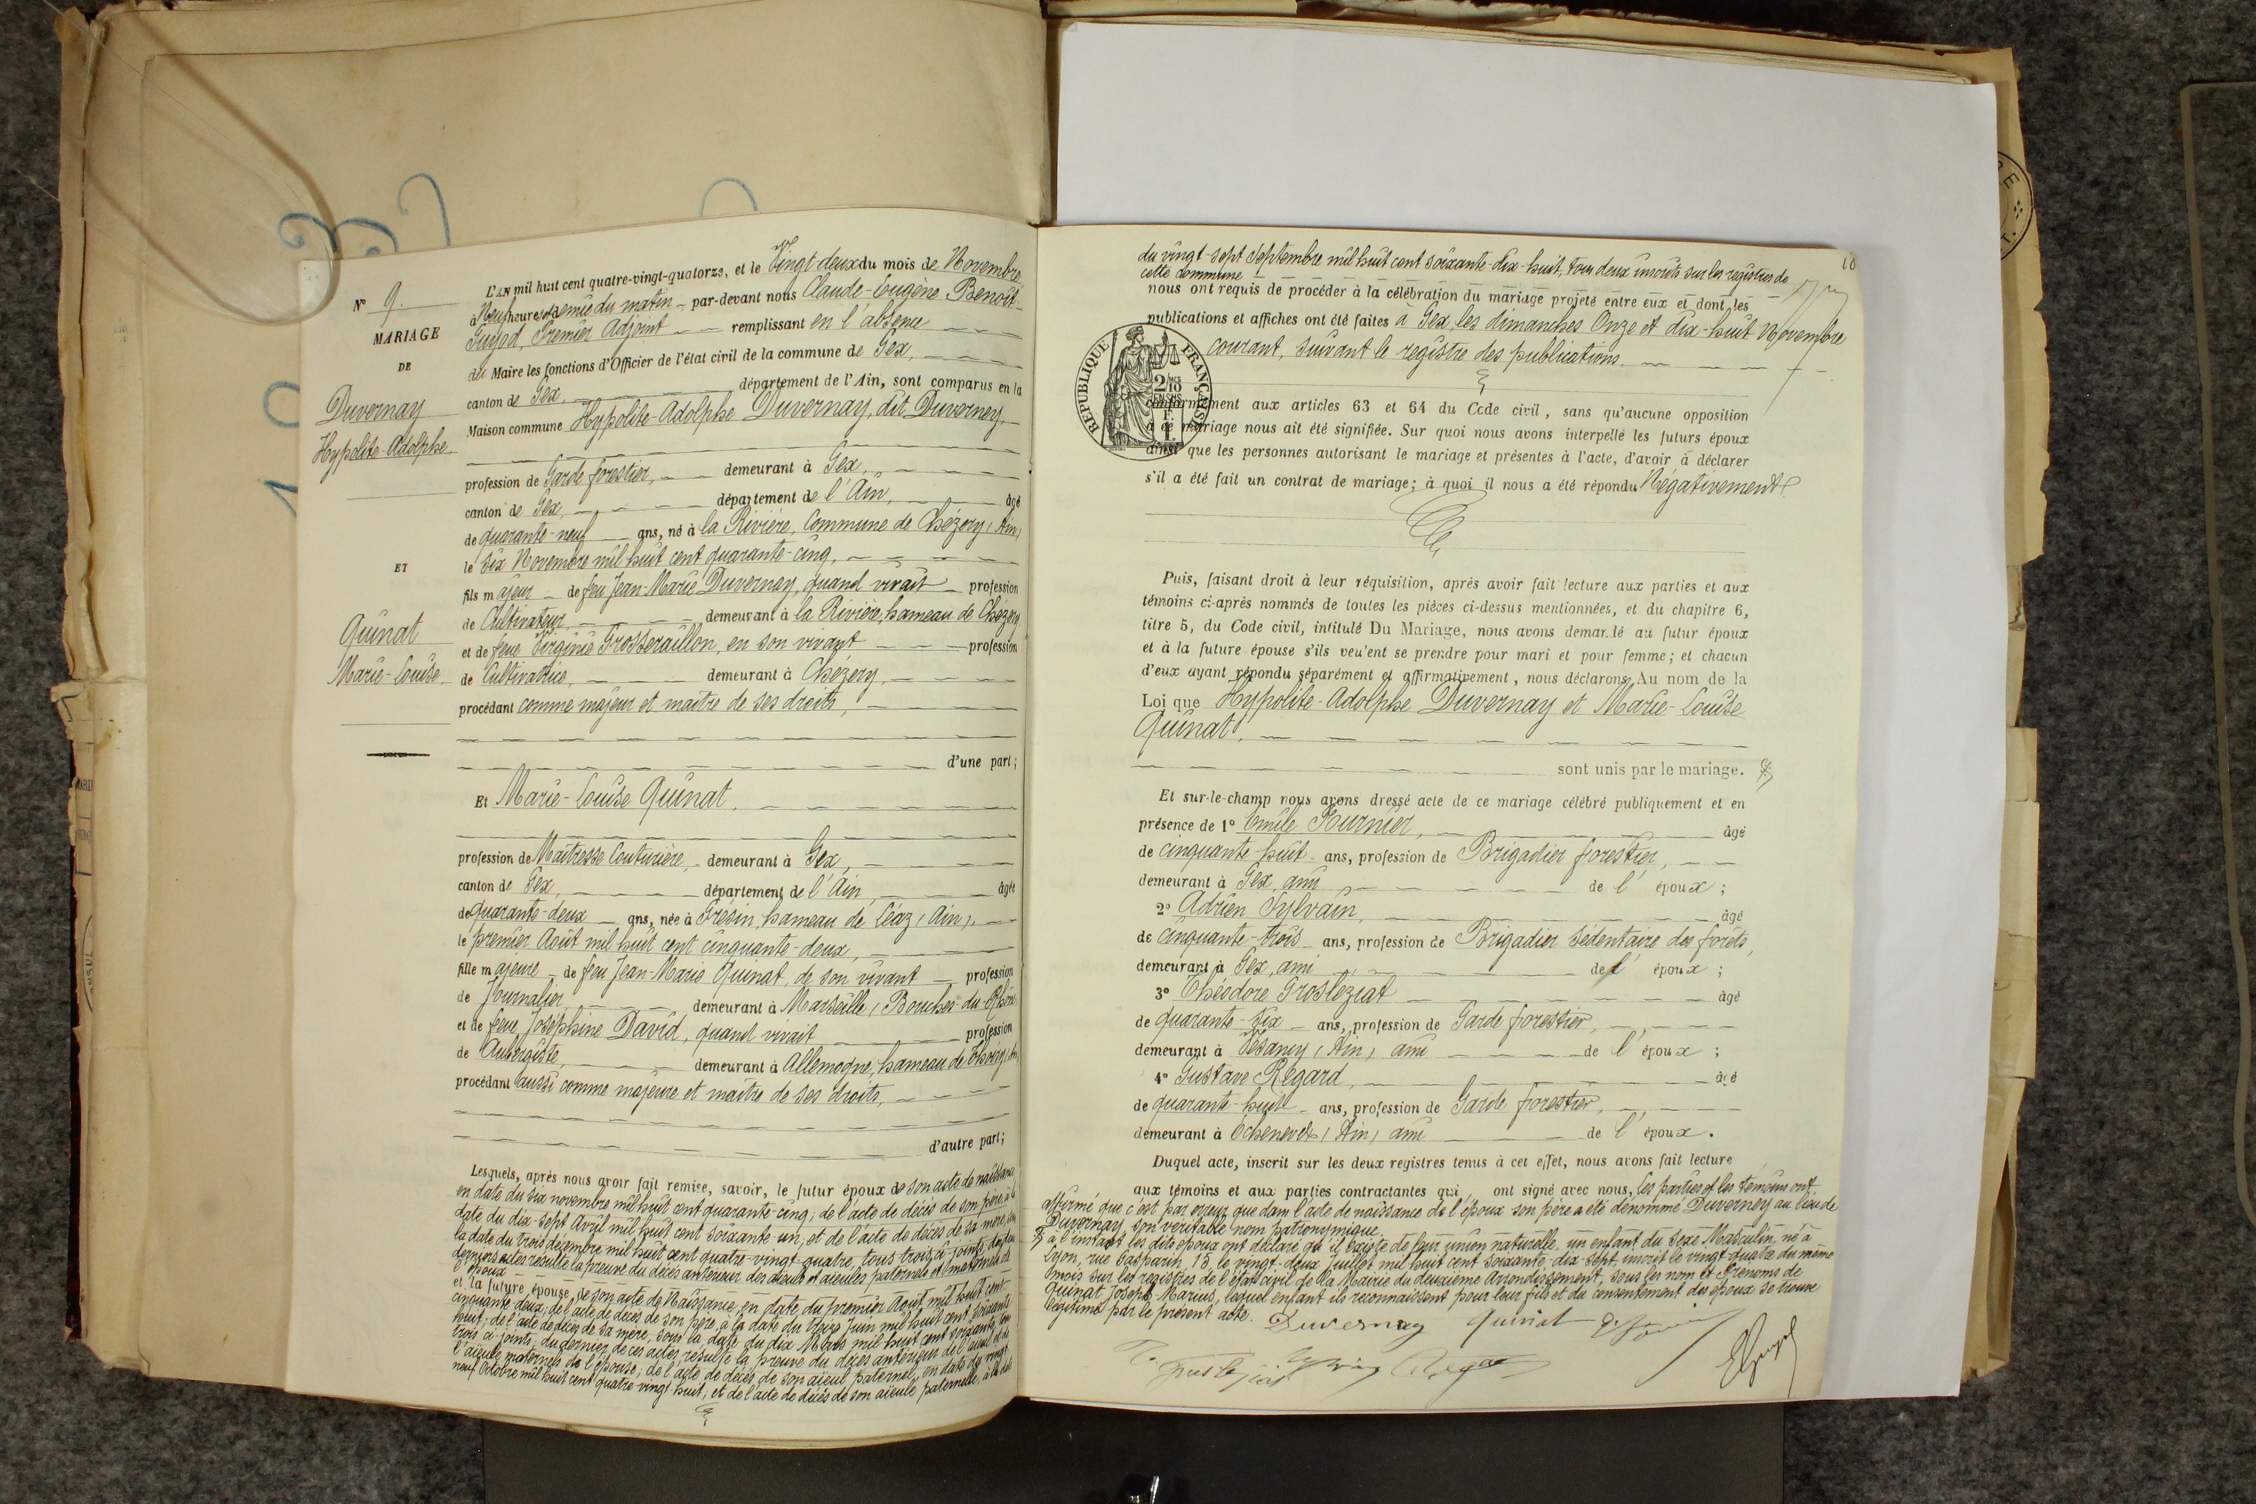 N° 9.
MARIAGE
DE
Duvernay
Hypolite-Adolphe.
ET
Quinat
Marie-Louise.
L'AN mil huit cent quatre-vingt-quatorze, et le Vingt-deux du mois de Novembre
à Neuf heures et demie du matin par-devant nous Claude-Eugène Benoît-
Guyod, Premier Adjoint remplissant en l'absence
du Maire les fonctions d'Officier de l'état civil de la commune de Gex,
canton de Gex, département de l'Ain, sont comparus en la
Maison commune Hypolite-Adolphe Duvernay, dit Duverney,
profession de Garde forestier, demeurant à Gex,
canton de Gex, département de l'Ain, âgé
de quarante-neuf ans, né à la Rivière, Commune de Chézery (Ain)
le six Novembre mil huit cent quarante-cinq,
fils majeur de feu Jean-Marie Duvernay, quand vivait profession
de Cultivateur, demeurant à la Rivière, hameau de Chézery
et de feue Virginie Grosseraillon, en son vivant profession
de Cultivatrice, demeurant à Chézery,
procédant comme majeur et maître de ses droits,
d'une part;
Et Marie-Louise Quinat.
profession de Maîtresse Couturière, demeurant à Gex,
canton de Gex, département de l'Ain, âgée
de quarante-deux ans, née à Grésin, hameau de Léaz (Ain),
le premier Août mil huit cent cinquante-deux,
fille majeure de feu Jean-Marie Quinat, de son vivant profession
de Journalier demeurant à Marseille (Bouches-du-Rhône
et de feue Joséphine David, quand vivait profession
de Aubergiste, demeurant à Allemogne, hameau de Thoiry (Ain)
procédant aussi comme majeure et maître de ses droits,
d'autre part;
Lesquels, après nous avoir fait remise, savoir, le futur époux de son acte de naissance
en date du six novembre mil huit cent quarante-cinq; de l'acte de décès de son père, à la
date du dix-sept Avril mil huit cent soixante un, et de l'acte de décès de sa mère, sous
la date du trois décembre mil huit cent quatre-vingt-quatre, tous trois ci-joints, desquels
derniers actes résulte la preuve du décès antérieur des aïeuls et aïeules paternels et maternels de
l'époux
et la future épouse de son acte de Naissance, en date du premier Août mil huit cent
cinquante-deux, de l'acte de décès de son père, à la date du treize Juin mil huit cent soixante
huit; de l'acte de décès de sa mère, sous la date du dix Mars mil huit cent soixante
trois ci-joints, du dernier de ces actes résulte la preuve du décès antérieur de l'aïeul et de
l'aïeule maternels de l'épouse; de l'acte de décès de son aïeul paternel, en date du vingt
neuf Octobre mil huit cent quatre vingt-huit, et de l'acte de décès de son aïeule paternelle, à la date
10
du vingt-sept Septembre mil huit cent soixante-dix-huit, tous deux inscrits sur les registres de
cette Commune
nous ont requis de procéder à la célébration du mariage projeté entre eux et dont les
publications et affiches ont été faites à Gex, les dimanches Onze et dix-huit Novembre
courant, suivant le registre des publications.
RÉPUBLIQUE FRANÇAISE
conformément aux articles 63 et 64 du Code civil, sans qu'aucune opposition
à ce mariage nous ait été signifiée. Sur quoi nous avons interpellé les futurs époux
ainsi que les personnes autorisant le mariage et présentes à l'acte, d'avoir à déclarer
s'il a été fait un contrat de mariage; à quoi il nous a été répondu Négativement.
Puis, faisant droit à leur réquisition, après avoir fait lecture aux parties et aux
témoins ci-après nommés de toutes les pièces ci-dessus mentionnées, et du chapitre 6,
titre 5, du Code civil, intitulé Du Mariage, nous avons demandé au futur époux
et à la future épouse s'ils veulent se prendre pour mari et pour femme; et chacun
d'eux ayant répondu séparément et affirmativement, nous déclarons Au nom de la
Loi que Hypolite-Adolphe Duvernay et Marie-Louise
Quinat.
sont unis par le mariage.
Et sur-le-champ nous avons dressé acte de ce mariage célébré publiquement et en
présence de 1° Emile Fournier, âgé
de cinquante-huit ans, profession de Brigadier forestier,
demeurant à Gex, ami de l'époux;
2° Adrien Sylvain, âgé
de cinquante-trois ans, profession de Brigadier sédentaire des forêts,
demeurant à Gex, ami de l'époux;
3° Théodore Grosleziat âgé
de quarante-six ans, profession de Garde forestier,
demeurant à Vesancy (Ain) ami de l'époux;
4° Gustave Régard, âgé
de quarante-huit ans, profession de Garde forestier,
demeurant à Echenevex (Ain) ami de l'époux.
Duquel acte, inscrit sur les deux registres tenus à cet effet, nous avons fait lecture
aux témoins et aux parties contractantes qui ont signé avec nous, les parties et les témoins ont
affirmé que c'est par erreur que dans l'acte de naissance de l'époux son père a été dénommé Duverney au lieu de
Duvernay, son véritable nom patronymique.
à l'instant les dits époux ont déclaré qu'il existe de leur union naturelle, un enfant du sexe Masculin, né à
Lyon, rue Gasparin, 15, le vingt-deux Juillet mil huit cent soixante-dix-sept, inscrit le vingt-quatre du même
mois sur les registres de l'état civil de la Mairie du deuxième Arrondissement, sous les nom et Prénoms de
Quinat Joseph Marius, lequel enfant ils reconnaissent pour leur fils et du consentement des époux se trouve
légitimé par le présent acte.
Duvernay Quinat